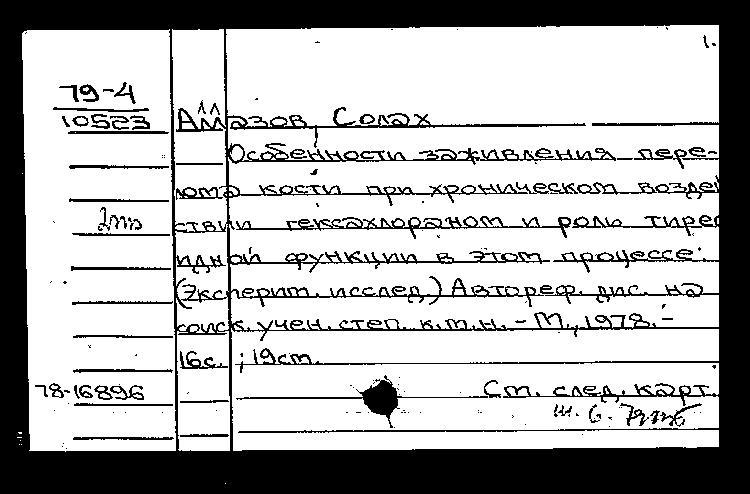 1.
79-4
10523 Амазов, Солах
Особенности заживления пере-
лома кости при хроническом воздей
2пп ствии гексахлораном и роль тирео
идной функции в этом процессе:
(Эксперит. исслед.) Автореф. дис. на
соиск. учен. степ. к.т.н. - М., 1978. -
16с. ; 19ст.
78-16896 Ст. след. карт.
ш. 6.